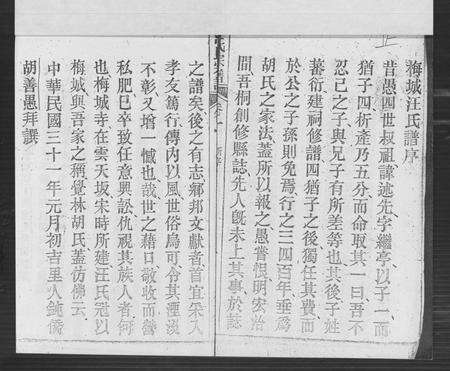 海城汪氏譜序
昔愚四世叔祖諱述先字繼亭以子一而
猶子四析產乃五分而命取其一曰吾不
忍己之子與兄子有所差等也其後子姓
蕃衍建祠修譜四猶子之後獨任其費而
於公之子孫則免焉行之三四百年垂為
胡氏之家法蓋所以報之愚昔恨明宏治
間吾桐創修縣誌先人既未上其事於誌
之譜矣後之有志鄉邦文獻者首宜采入
孝友篤行傳內以風世俗烏可令其湮沒
不彰又增一憾也哉世之藉口敬收而營
私肥己卒致任意興訟仇視其族人者何
也梅城寺在雲天坂宋時所建汪氏冠以
梅城與吾家之稱覺林胡氏蓋仿佛云
中華民國三十一年元月初吉里人鈍儕
胡善愚拜譔